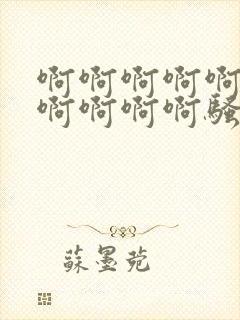 啊啊啊啊啊
啊啊啊啊骚
苏墨苑